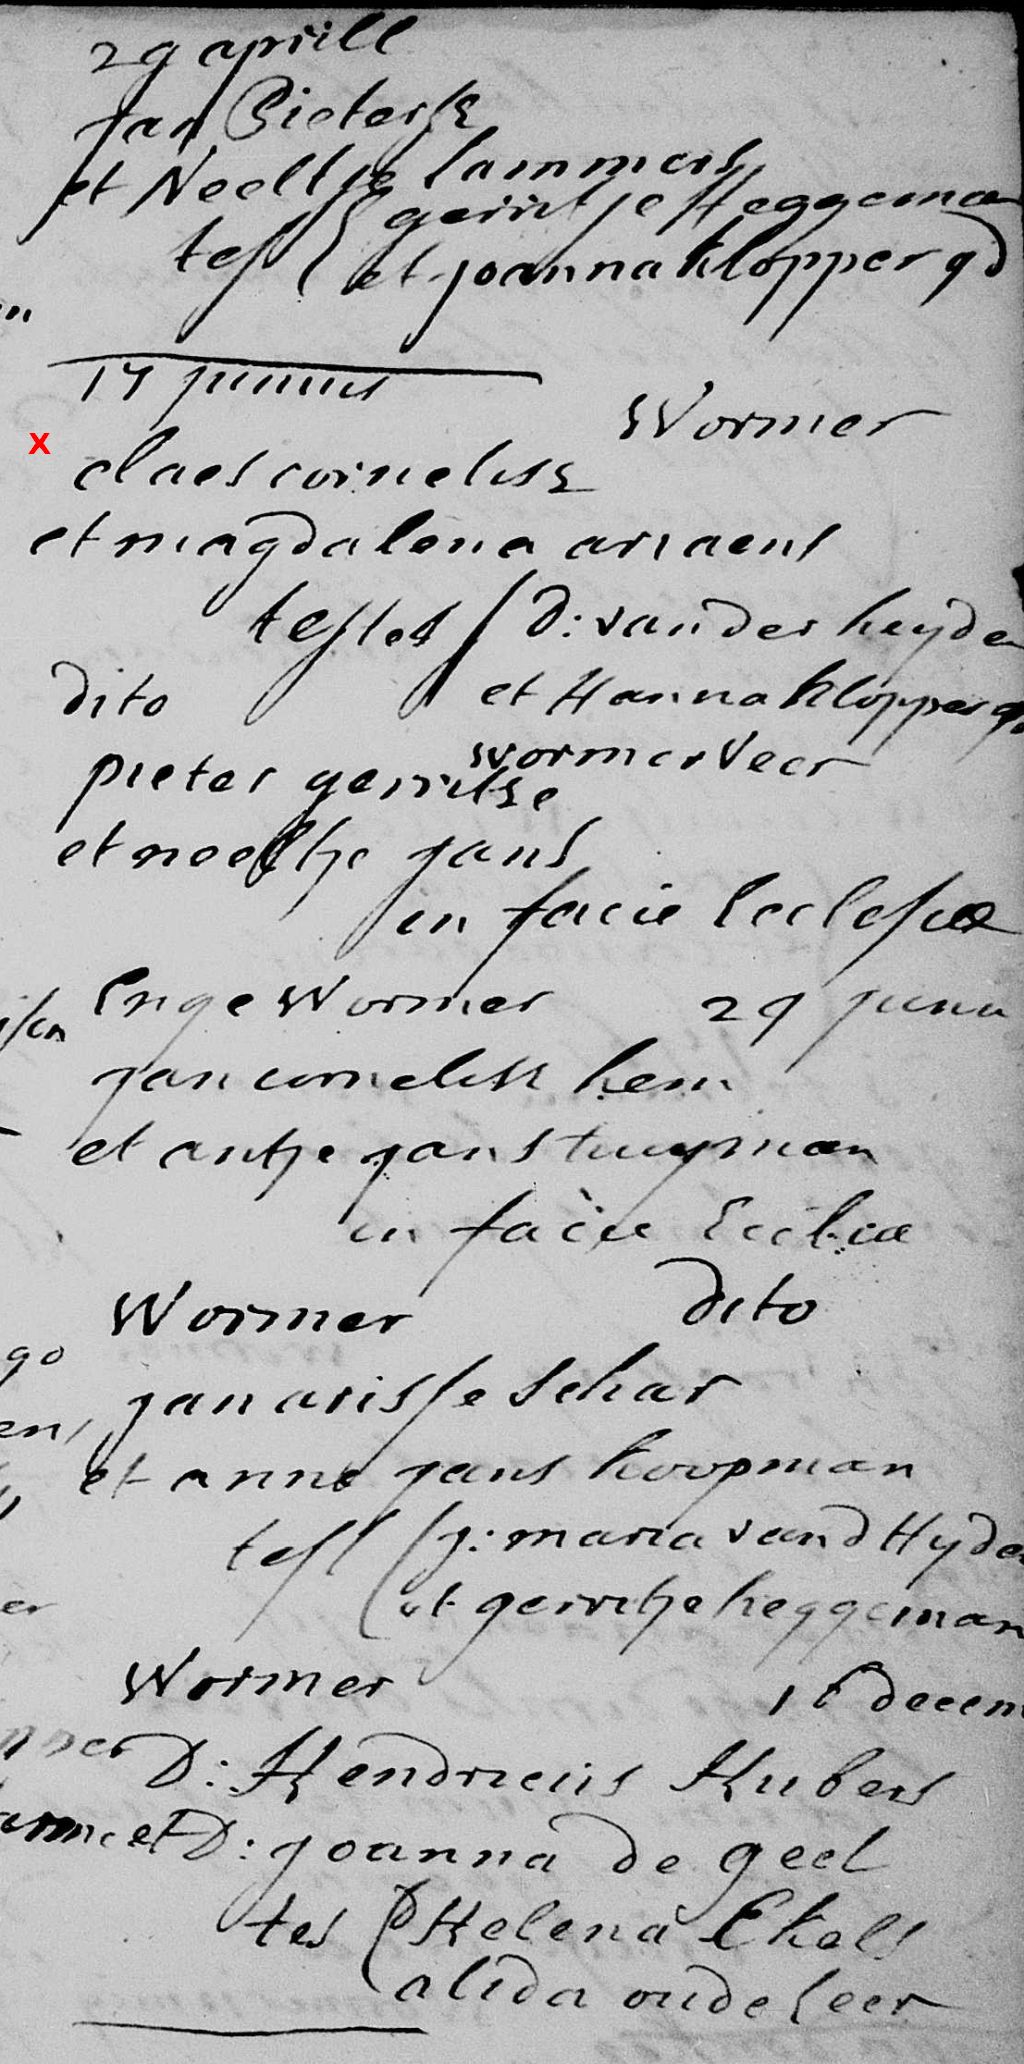 29 aprill
Jan Pieterse
et Neeltje lammers
gerritje Heggeman
test et joanna klopper gd
17 junius
Wormer
x
claes cornelisse
et magdalena ariaens
testes D: vander heyden
dito et Hanna klopper
wormerveer
pieter gerritse
et neeltje jans
in facie Ecclesiæ
Enge Wormer 29 junii
jan cornelisse hem
et antje jans tuijman
in facie Eccliæ
Wormer dito
jan arisse schar
et anne jans koopman
test j: maria vand Hyden
et gerritje heggeman
Wormer 16 decem
D: Hendricus Hubers
et D: joanna de geel
tes D Helena Ekels
alida oudeleer